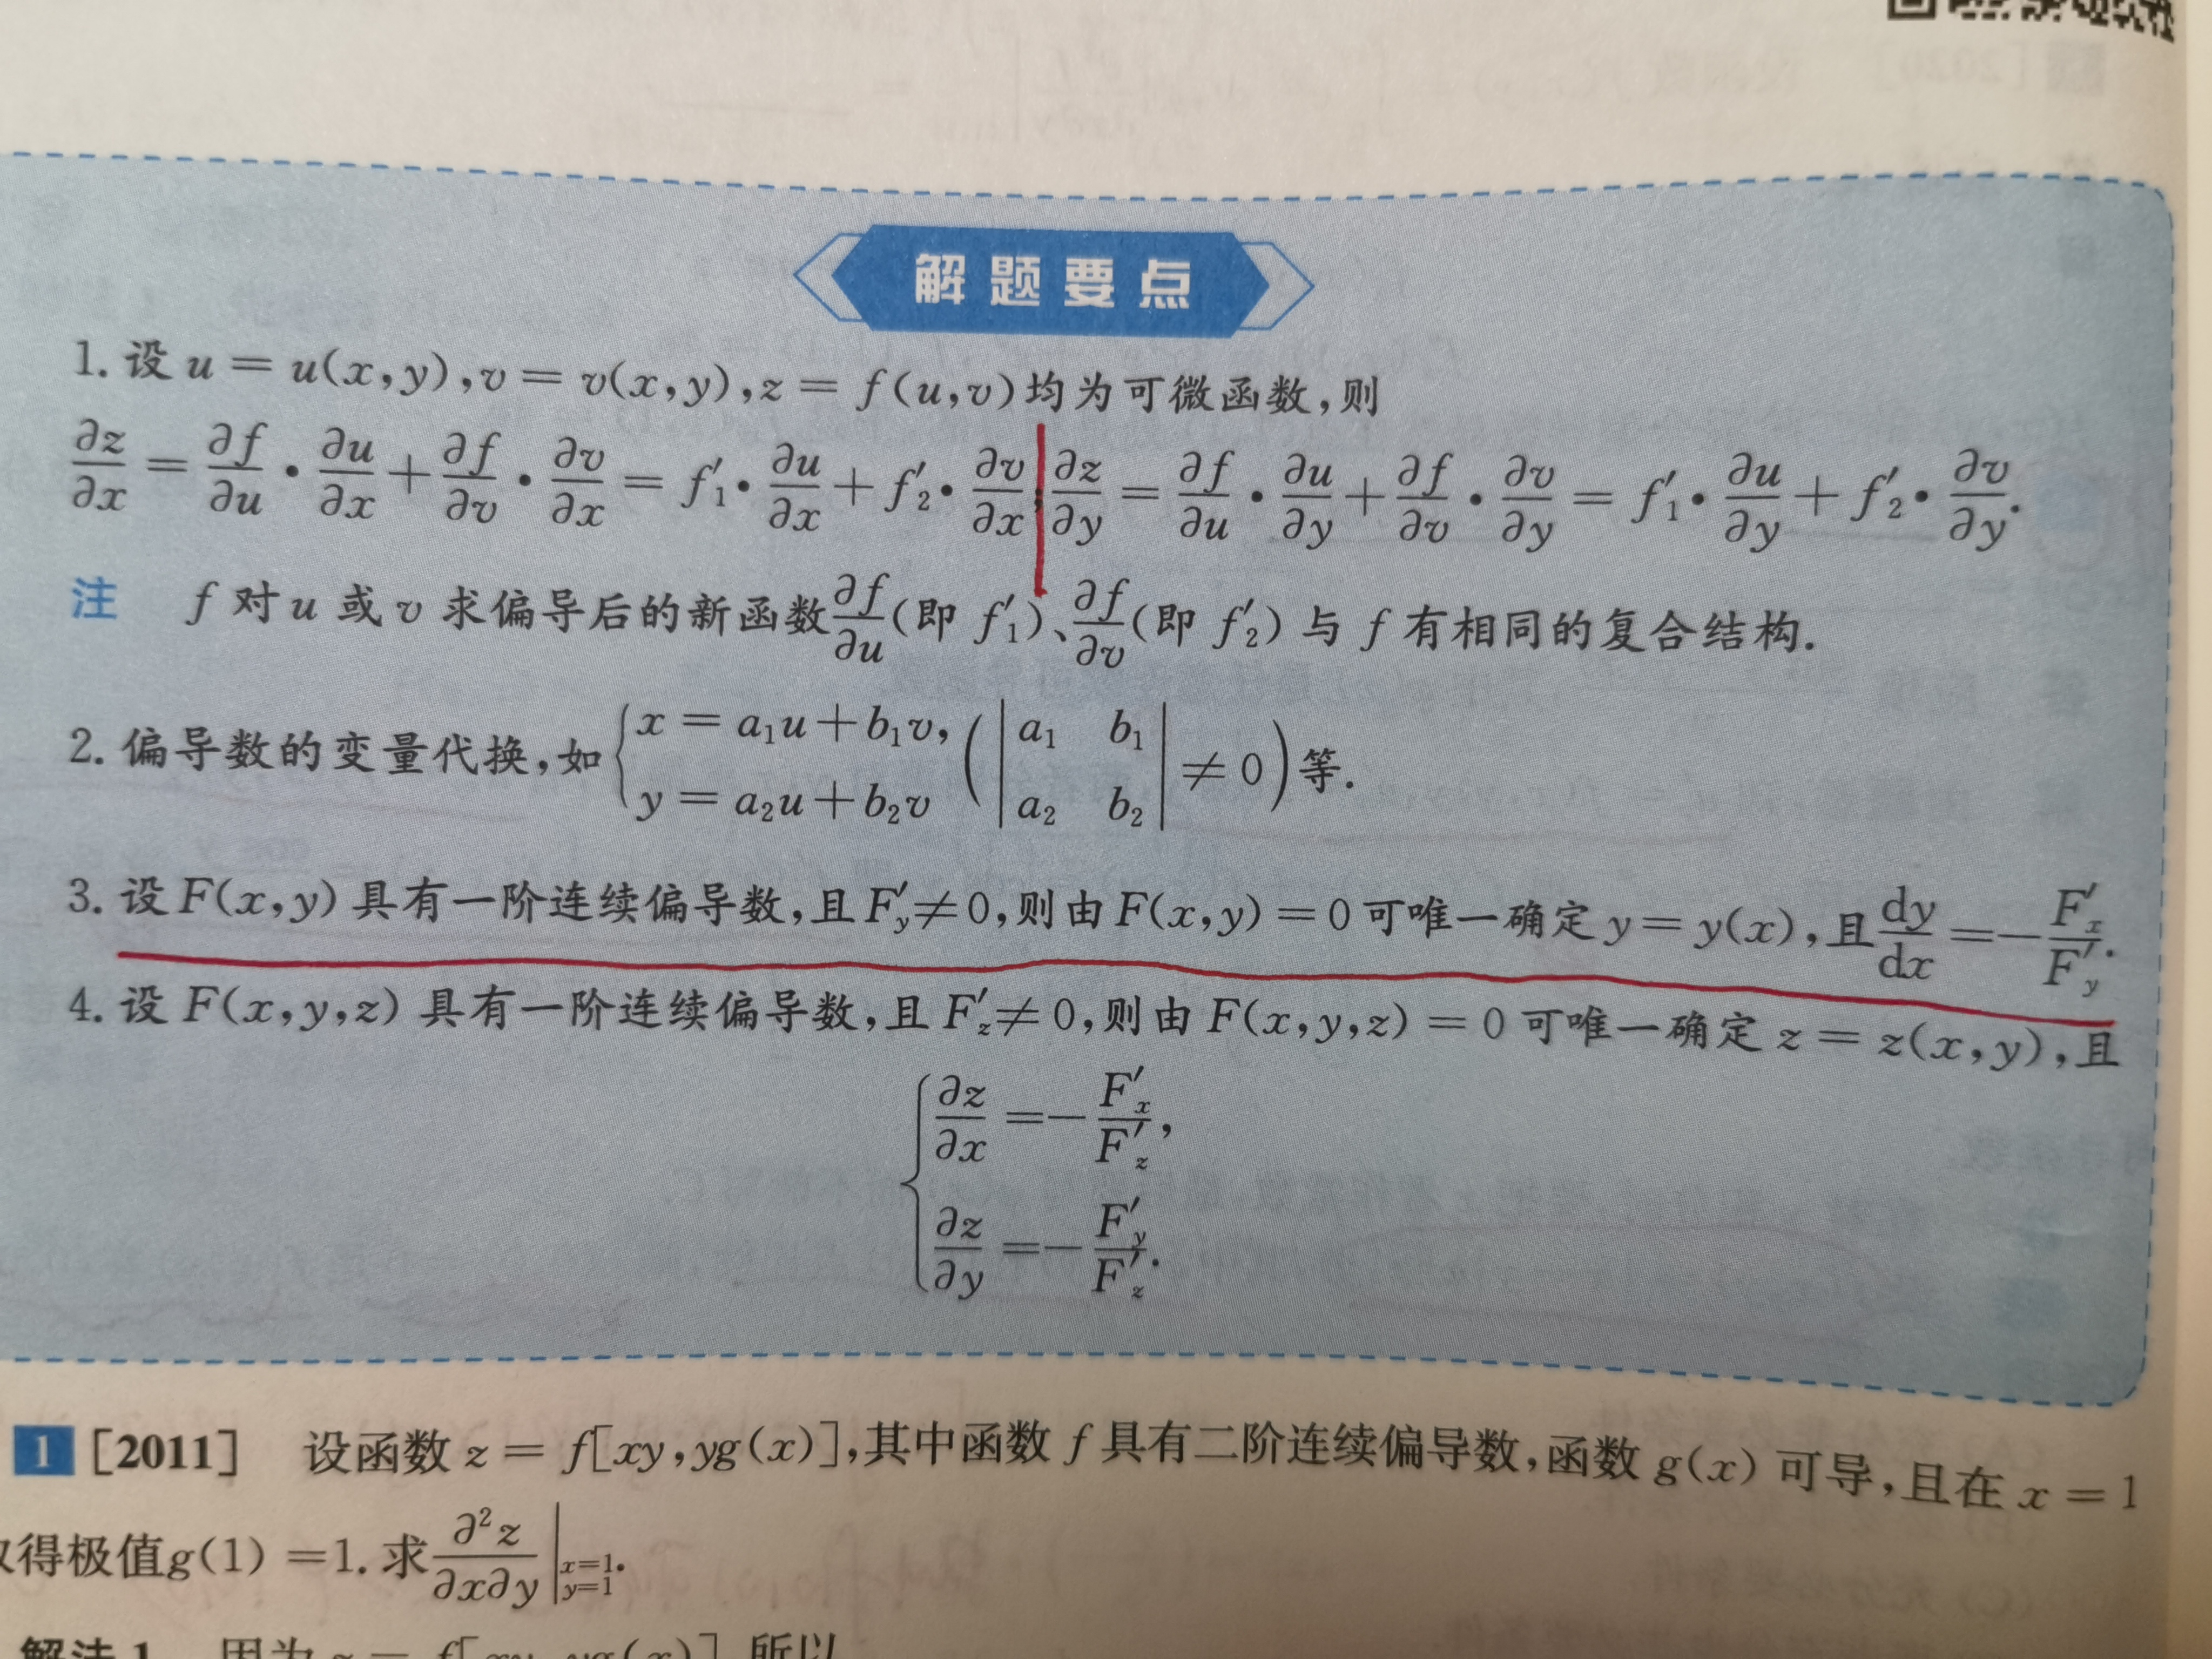 解题要点
1. 设 u = u(x,y),v = v(x,y),z = f(u,v)均为可微函数,则
∂z/∂x = ∂f/∂u · ∂u/∂x + ∂f/∂v · ∂v/∂x = f′₁ · ∂u/∂x + f′₂ · ∂v/∂x; ∂z/∂y = ∂f/∂u · ∂u/∂y + ∂f/∂v · ∂v/∂y = f′₁ · ∂u/∂y + f′₂ · ∂v/∂y.
注 f 对 u 或 v 求偏导后的新函数 ∂f/∂u (即 f′₁)、∂f/∂v (即 f′₂) 与 f 有相同的复合结构.
2. 偏导数的变量代换,如 { x = a₁u + b₁v, y = a₂u + b₂v ( | a₁ b₁ a₂ b₂ | ≠ 0 ) 等.
3. 设 F(x,y) 具有一阶连续偏导数,且 F′y ≠ 0,则由 F(x,y) = 0 可唯一确定 y = y(x),且 dy/dx = − F′x/F′y.
4. 设 F(x,y,z) 具有一阶连续偏导数,且 F′z ≠ 0,则由 F(x,y,z) = 0 可唯一确定 z = z(x,y),且
∂z/∂x = − F′x/F′z,
∂z/∂y = − F′y/F′z.
1 [2011] 设函数 z = f[xy,yg(x)],其中函数 f 具有二阶连续偏导数,函数 g(x) 可导,且在 x = 1
得极值g(1) = 1. 求 ∂²z/∂x∂y | x=1 y=1.
解法 1 因为 z = f[xy, yg(x)] 所以